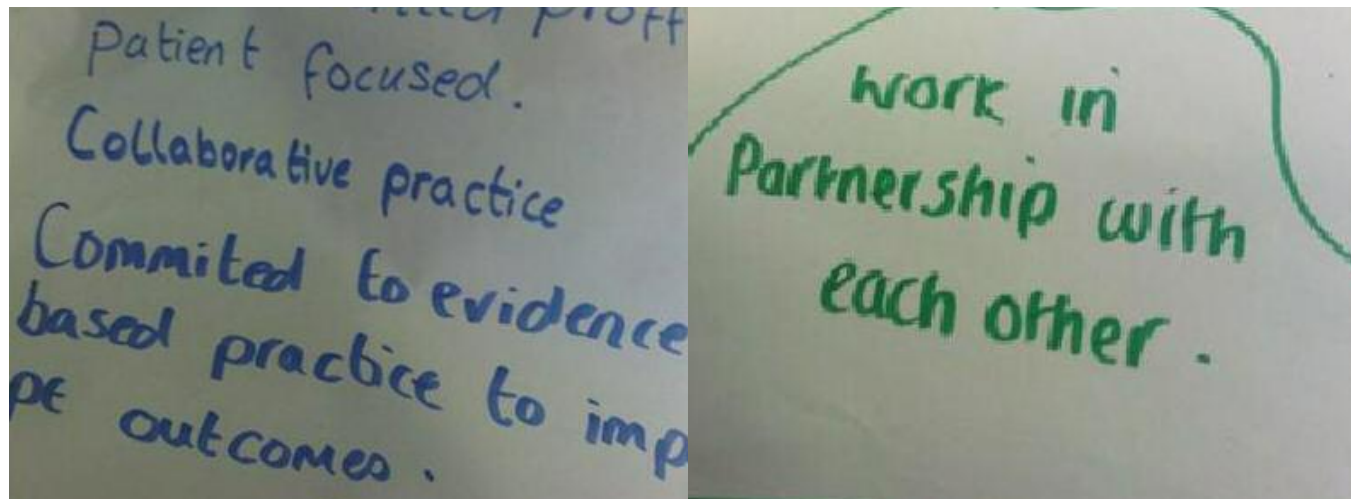 patient focused.
Collaborative practice
Commited to evidence
based practice to imp
pt outcomes.
work in
Partnership with
each other.